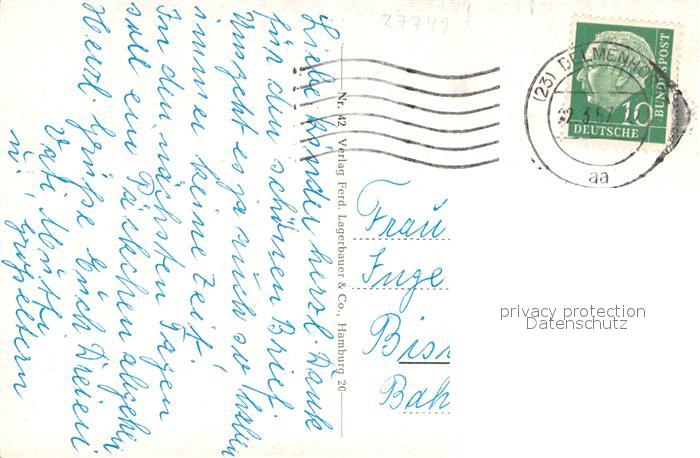 27749
Liebe Kinder herzl. Dank
für den schönen Brief
Umgeht es ja auch so haben
immer keine Zeit!
In den nächsten Tagen
soll ein Päckchen abgehen
Herzl. Grüße Euch Dreien
Vati Mutti
u. Großeltern
Nr. 42 Verlag Ferd. Lagerbauer & Co., Hamburg 20
(23) DELMENHO
22.3.57
aa
10
DEUTSCHE
BUNDESPOST
Frau
Inge
Bis
Bah
privacy protection
Datenschutz